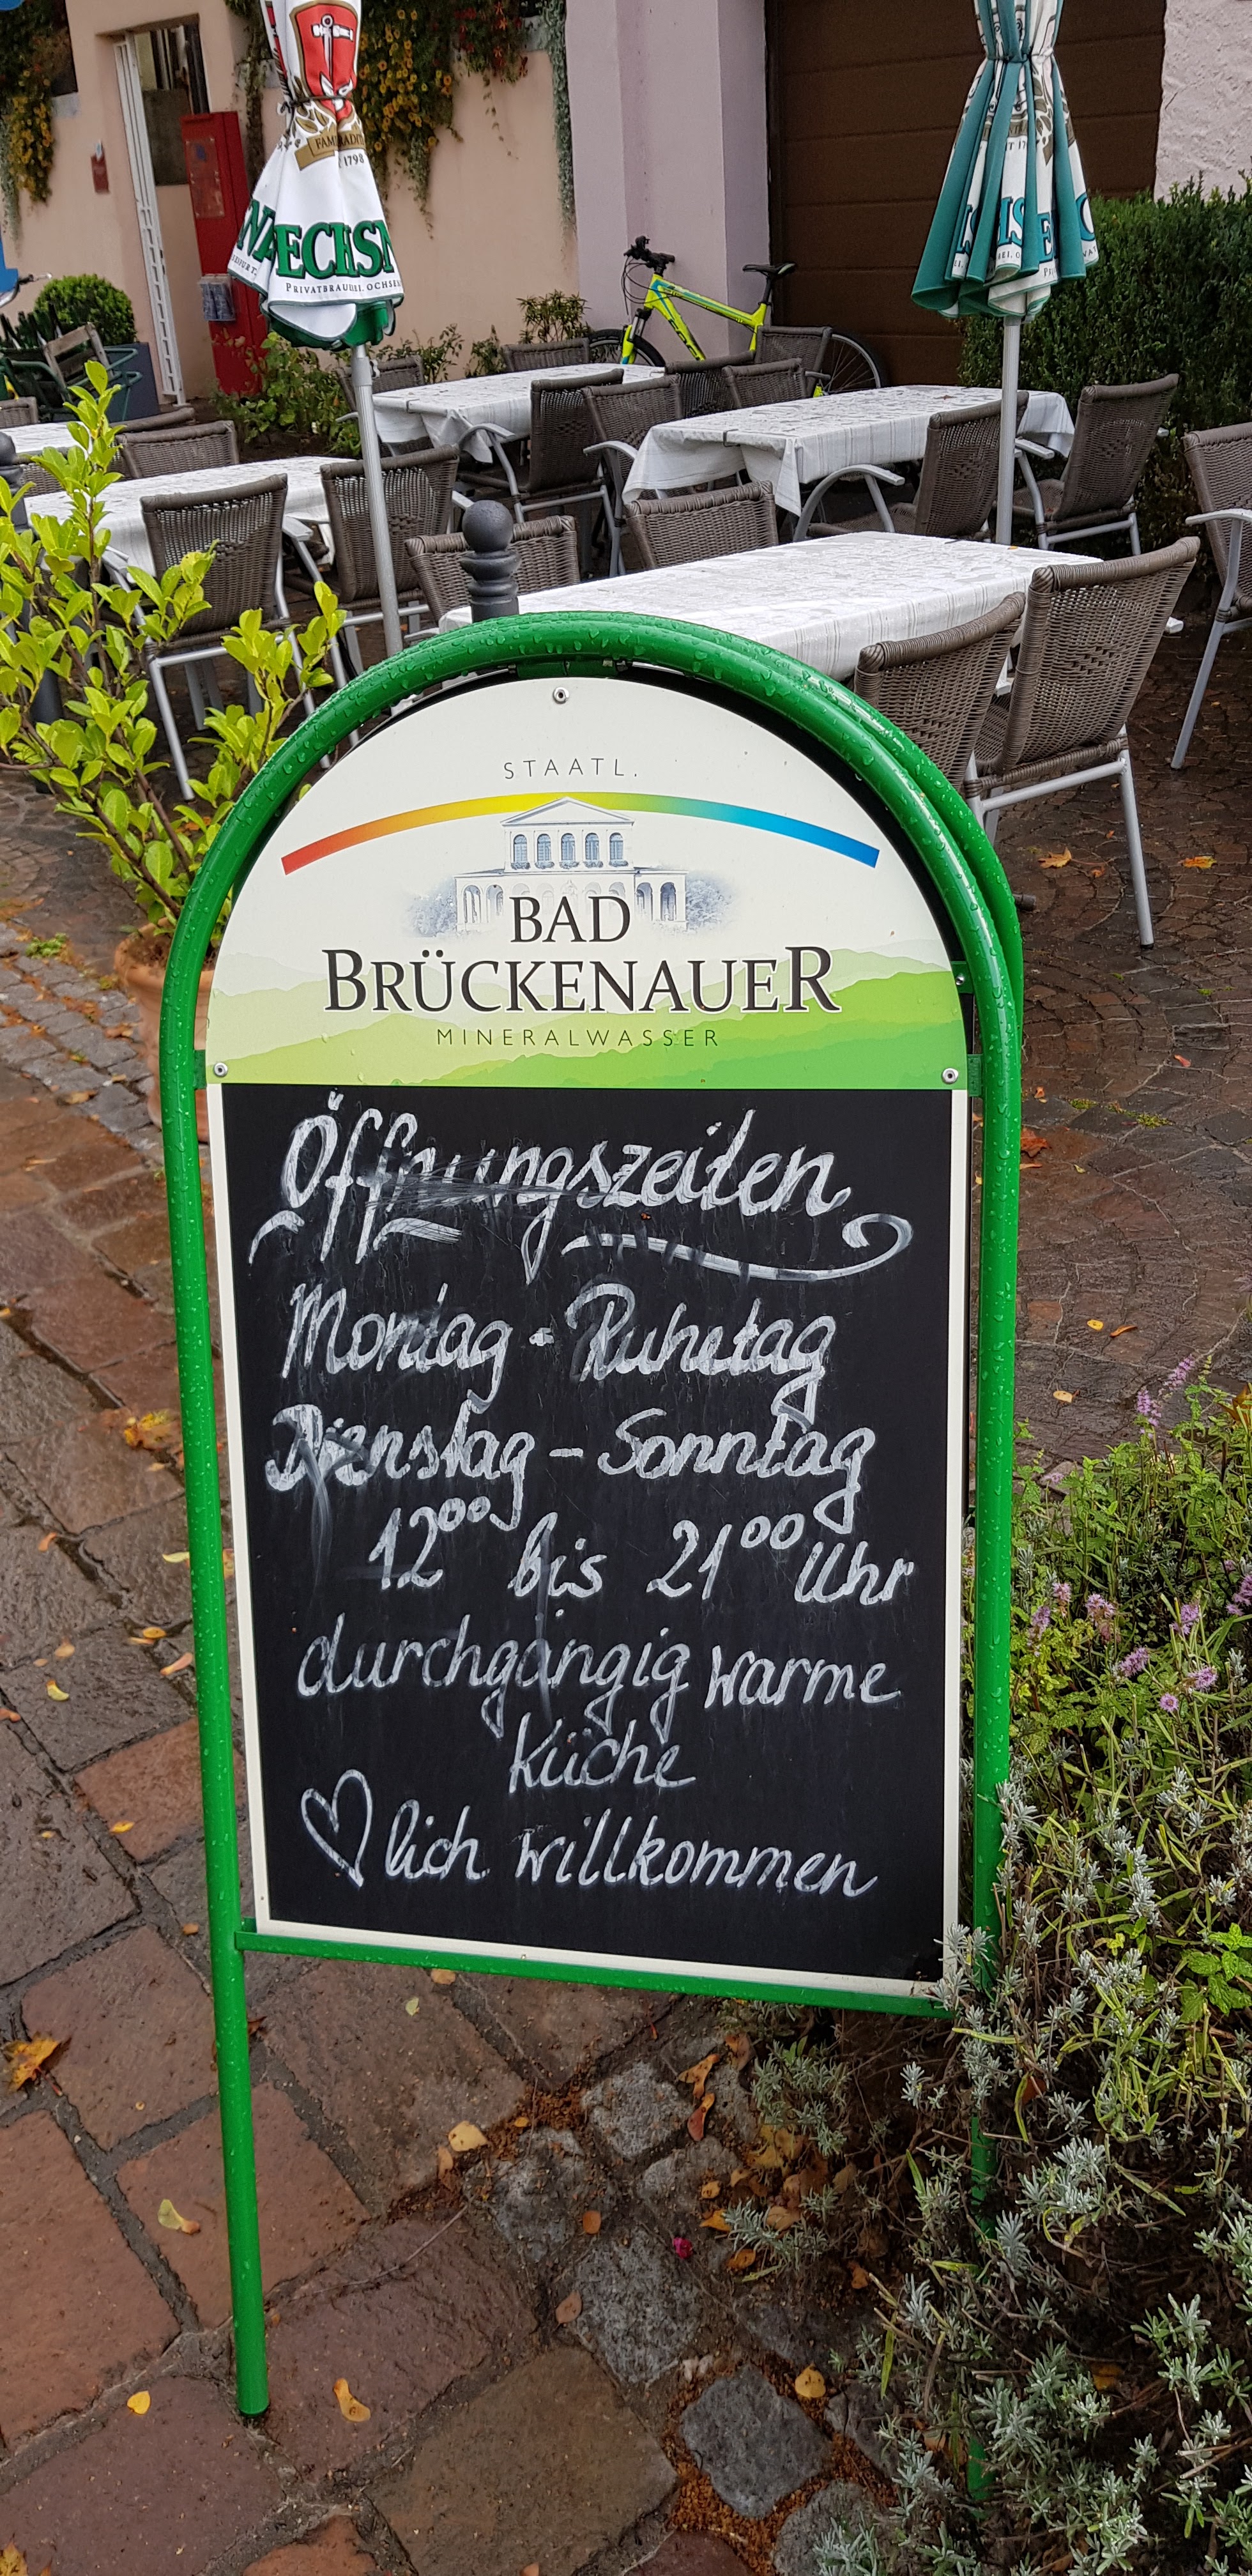 FAM
RADIT
1798
ECHSN
PRIVATBRAUEREI. OCHSE
STAATL.
BAD
BRÜCKENAUER
MINERALWASSER
Öffnungszeiten
Montag - Ruhetag
Dienstag - Sonntag
12⁰⁰ bis 21⁰⁰ Uhr
durchgängig warme
Küche
♡lich willkommen